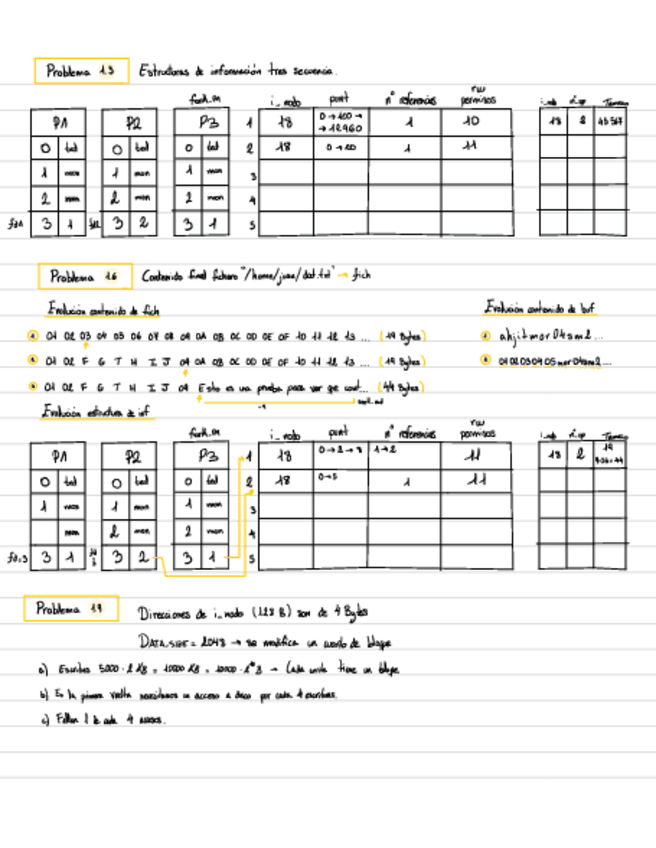 Problema 13 Estructuras de información tras secuencia.
fork_m
i_nodo punt nº referencias rw permisos
P1 P2 P3
1 18 0→100→ →12960 1 10
18 2 45367
0 tecl 0 tecl 0 tecl
2 18 0→20 1 11
1 mon 1 mon 1 mon
3
2 mon 2 mon 2 mon
4
3 1 3 2 3 1
5
Problema 16 Contenido final fichero "/home/juan/dat.txt" → fich
Evolución contenido de fich
Evolución contenido de buf
01 02 03 04 05 06 07 08 09 0A 0B 0C 0D 0E 0F 10 11 12 13 ... (19 Bytes)
01 02 F G T H I J 09 0A 0B 0C 0D 0E 0F 10 11 12 13 ... (19 Bytes)
0102030405mor04sm2...
01 02 F G T H I J 09 Esto es una prueba para ver que cont... (44 Bytes)
Evolución estructura de inf
fork_m
i_nodo punt nº referencias rw permisos
P1 P2 P3
1 18 0→2→8 1→2 11
18 2 19
0 tecl 0 tecl 0 tecl
2 18 0→5 1 11
1 mon 1 mon 1 mon
3
mon 2 mon 2 mon
4
fd=3 3 1 3 2 3 1
5
Problema 19 Direcciones de i_nodo (128 B) son de 4 Bytes
DATA_SIZE = 2048 → se modifica un cuarto de bloque
a) Escribes 5000 · 2 KB = 10000 KB = 10000 · B → Cada una tiene un bloque
b) En la primera vuelta necesitamos un acceso a disco por cada 4 escrituras.
c) Fallan 1 de cada 4 accesos.